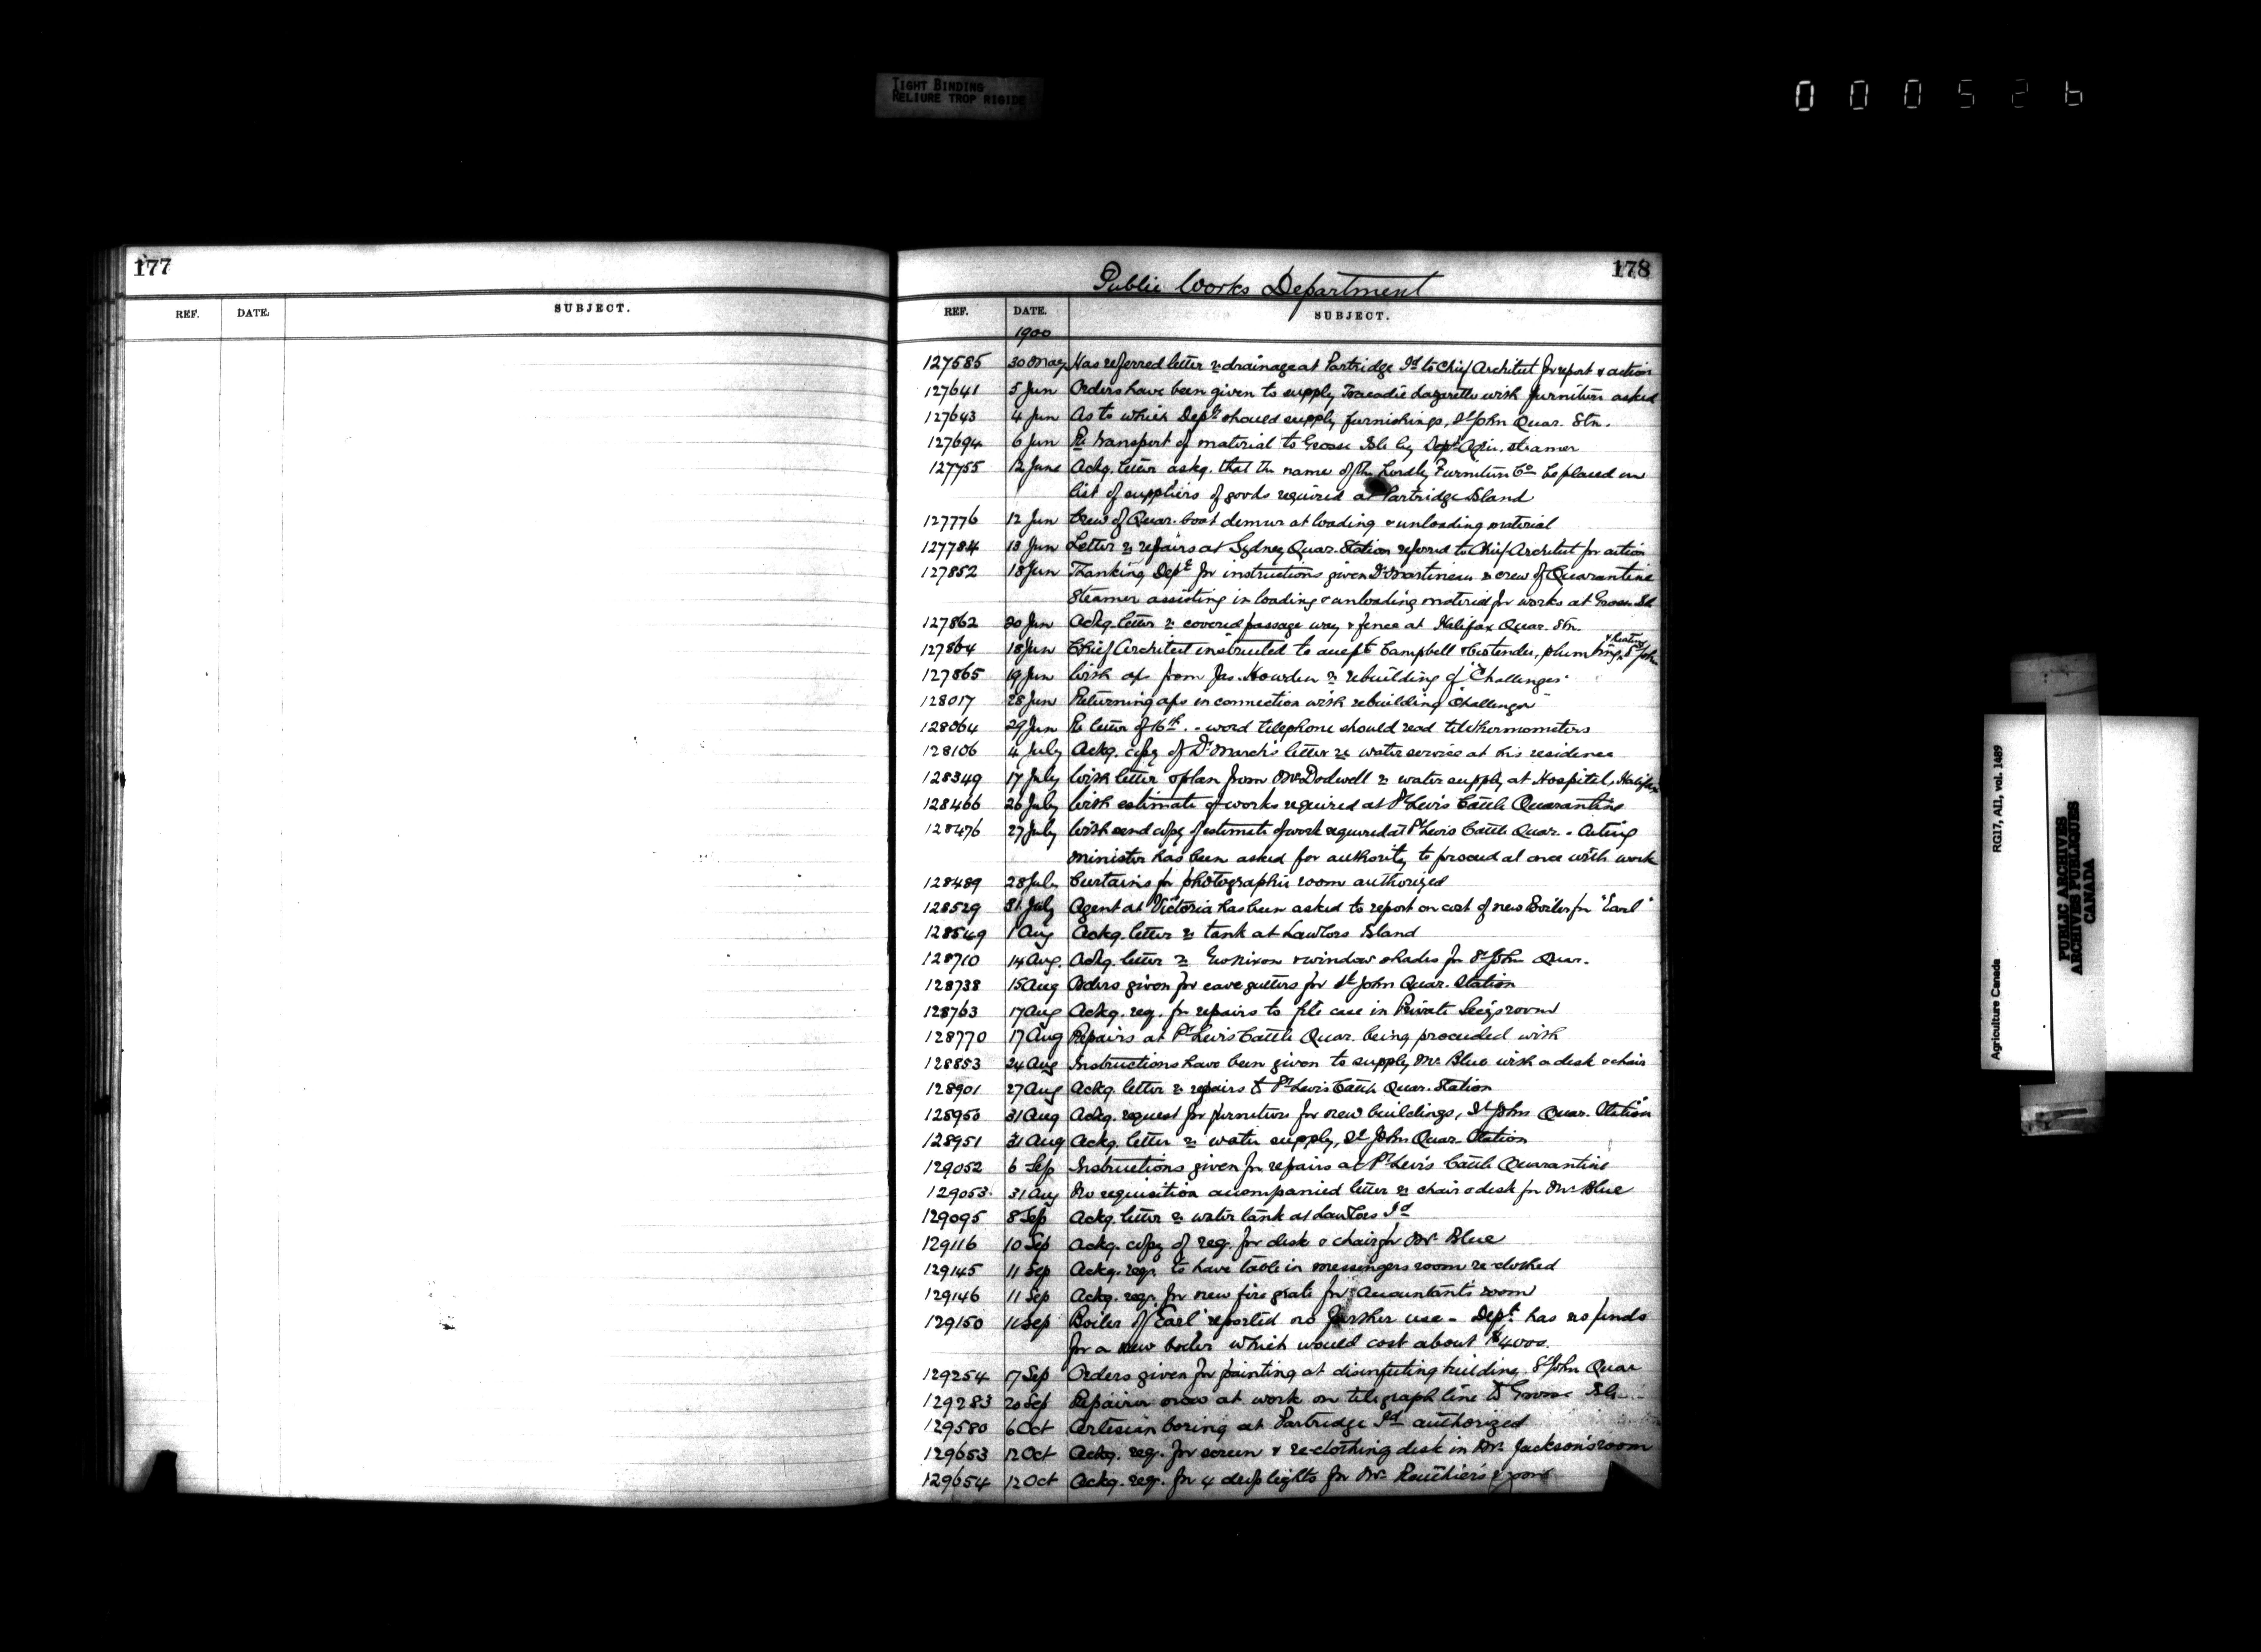 TIGHT BINDING
RELIURE TROP RIGIDE
000526
177
REF. DATE. SUBJECT.
178
Public Works Department
REF. DATE. SUBJECT.
1900
127585 30 May Has referred letter re drainage at Partridge Id to Chief Architect for report & action
127641 5 Jun Orders have been given to supply Tracadie Lazaretto with furniture asked
127643 4 Jun As to which Dept should supply furnishings, St John Quar. Stn.
127694 6 Jun Re transport of material to Grosse Isle by Dept Agri. steamer
127755 12 June Ackg. letter askg. that the name of the Lordly Furniture Co be placed on
list of suppliers of goods required at Partridge Island
127776 12 Jun Crew of Quar. boat demur at loading & unloading material
127784 13 Jun Letter re repairs at Sydney Quar. Station referred to Chief Architect for action
127852 18 Jun Thanking Dept for instructions given Dr Martineau re crew of Quarantine
Steamer assisting in loading & unloading material for works at Grosse Isle
127862 20 Jun Ackg. letter re covered passage way & fence at Halifax Quar. Stn.
127864 18 Jun Chief Architect instructed to accept Campbell & Co's tender, plumbing & heating, St John
127865 19 Jun With aps from Jas. Howden re rebuilding of "Challenger"
128017 28 Jun Returning aps in connection with rebuilding "Challenger"
128064 29 Jun Re letter of 16th. - word telephone should read telethermometers
128106 4 July Ackg. copy of Dr March's letter re water service at his residence
128349 17 July With letter & plan from Mr Dodwell re water supply at Hospital, Halifax
128466 26 July With estimate of works required at Pt Levis Cattle Quarantine
128476 27 July With send copy of estimate of work required at Pt Levis Cattle Quar. - Acting
Minister has been asked for authority to proceed at once with work
128489 28 July Curtains for photographic room authorized
128529 31 July Agent at Victoria has been asked to report on cost of new Boiler for "Earl"
128549 1 Aug Ackg. letter re tank at Lawlors Island
128710 14 Aug. Ackg. letter re Geo Nixon & window shades for St John Quar.
128738 15 Aug Orders given for eave gutters for St John Quar. Station
128763 17 Aug Ackg. req. for repairs to file case in Private Sec'y's room
128770 17 Aug Repairs at Pt Levis Cattle Quar. being proceeded with
128853 24 Aug Instructions have been given to supply Mr Blue with a desk & chair
128901 27 Aug Ackg. letter re repairs to Pt Levis Cattle Quar. Station
128950 31 Aug Ackg. request for furniture for new buildings, St John Quar. Station
128951 31 Aug Ackg. letter re water supply, St John Quar. Station
129052 6 Sep Instructions given for repairs at Pt Levis Cattle Quarantine
129053 31 Aug No requisition accompanied letter re chair & desk for Mr Blue
129095 8 Sep Ackg. letter re water tank at Lawlors Id
129116 10 Sep Ackg. copy of req. for desk & chair for Mr Blue
129145 11 Sep Ackg. req. to have table in messengers room re-clothed
129146 11 Sep Ackg. req. for new fire grate for Accountant's room
129150 11 Sep Boiler of "Earl" reported no further use - Dept has no funds
for a new boiler which would cost about $4000.
129254 17 Sep Orders given for painting at disinfecting building, St John Quar
129283 20 Sep Repairer now at work on telegraph line to Grosse Isle
129580 6 Oct Artesian boring at Partridge Id authorized
129653 12 Oct Ackg. req. for screen & re-clothing desk in Mr Jackson's room
129654 12 Oct Ackg. req. for 4 drop lights for Mr Routhier's room
Agriculture Canada RG17, AII, vol. 1489
PUBLIC ARCHIVES
ARCHIVES PUBLIQUES
CANADA